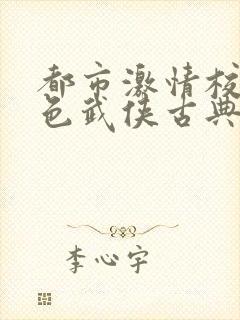 都市激情校
色武侠古典
李心宇